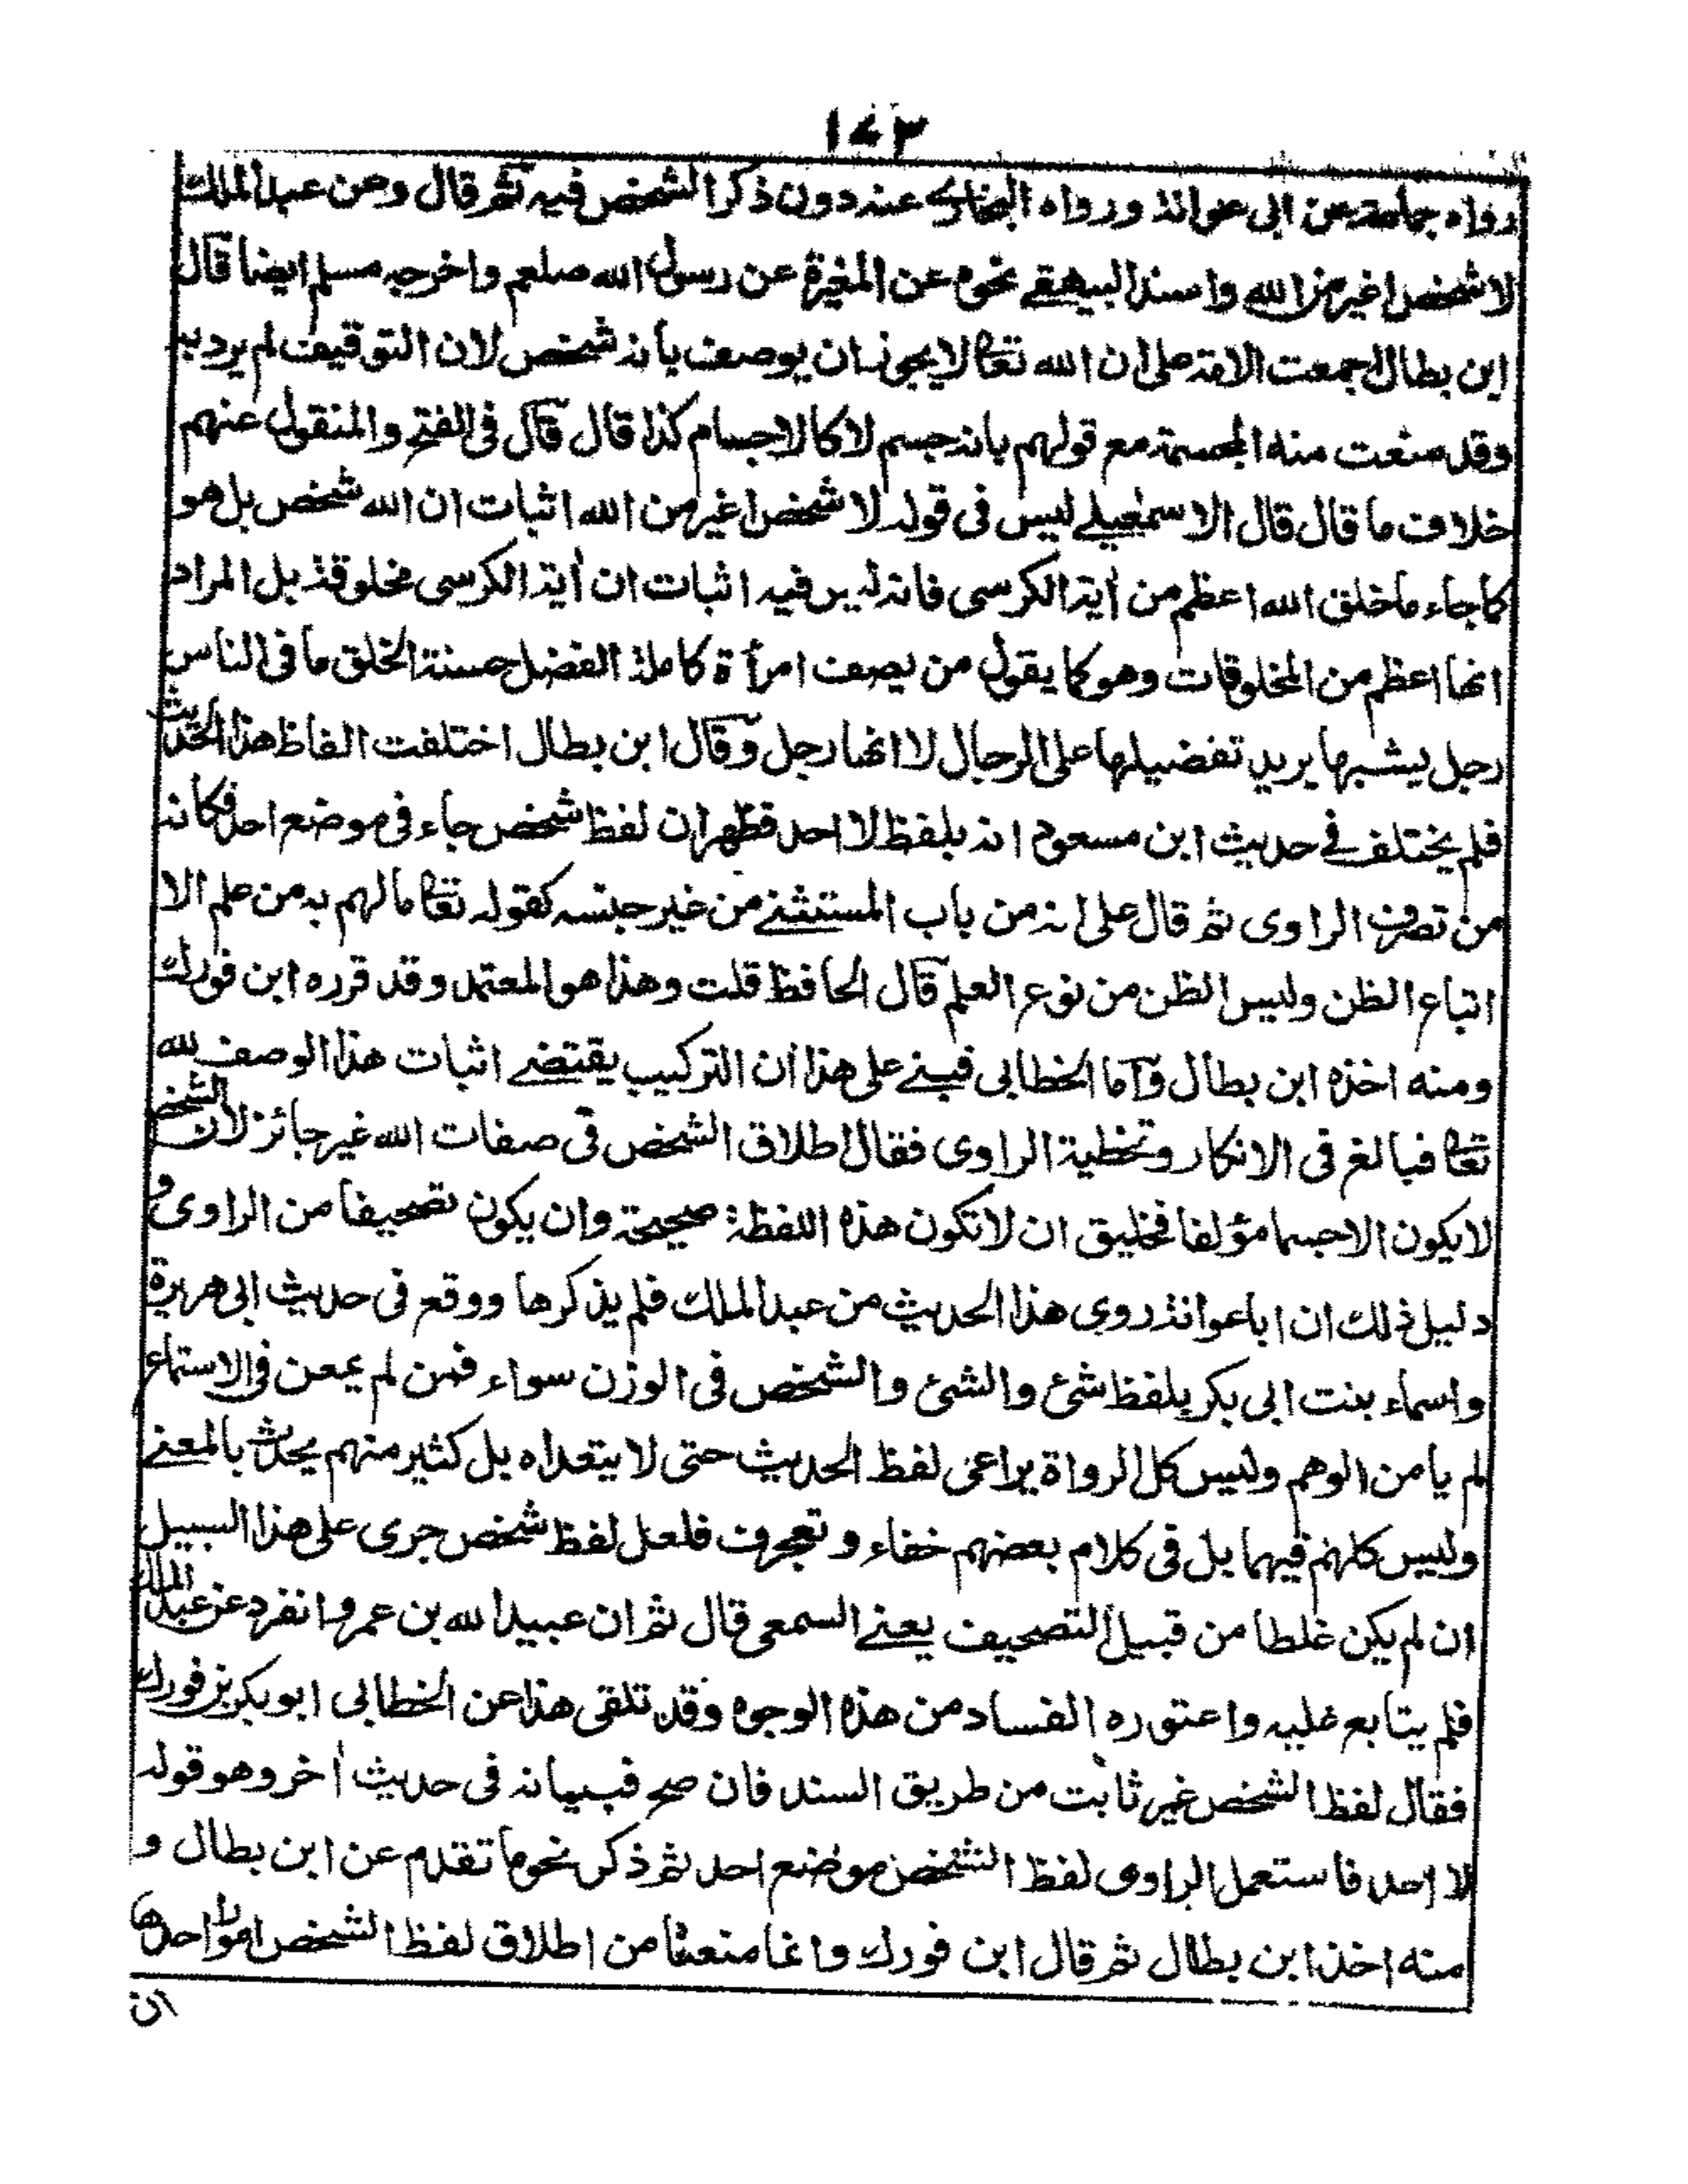 ١٤٣
رواه جماعة عن ابى عوانة ورواه البخارى عنه دون ذكر الشخص فيه ثم قال وعن عبد الملك
لا شخص اغير من الله واسند البيهقے نحوه عن المغيرة عن رسول الله صلعم واخرجه مسلم ايضا قال
ابن بطال اجمعت الامة على ان الله تعالى لا يجوز ان يوصف بأنه شخص لان التوقيف لم يرد به
وقد منعت منه المجسمة مع قولهم بانه جسم لا كالاجسام كذا قال قال فى الفتح والمنقول عنهم
خلاف ما قال قال الاسمعيلے ليس فى قوله لا شخص اغير من الله اثبات ان الله شخص بل هو
كما جاء ما خلق الله اعظم من أية الكرسى فانه ليس فيه اثبات ان أية الكرسى مخلوقة بل المراد
انها اعظم من المخلوقات وهو كما يقول من يصف امرأة كاملة الفضل حسنة الخلق ما فى الناس
رجل يشبهها يريد تفضيلها على الرجال لا انها رجل وقال ابن بطال اختلفت الفاظ هذا الحديث
فلم يختلف فے حديث ابن مسعود انه بلفظ لا احد فظهر ان لفظ شخص جاء فى موضع احد فكانه
من تصرف الراوى ثم قال على انه من باب المستثنے من غير جنسه كقوله تعالى ما لهم به من علم الا
اتباع الظن وليس الظن من نوع العلم قال الحافظ قلت وهذا هو المعتمد وقد قرره ابن فورك
ومنه اخذه ابن بطال وأما الخطابى فبنے على هذا ان التركيب يقتضے اثبات هذا الوصف لله
تعالى فبالغ فى الانكار وتخطية الراوى فقال اطلاق الشخص فى صفات الله غير جائز لان الشخص
لا يكون الا جسما مؤلفا فخليق ان لا تكون هذه اللفظة صحيحة وان يكون تصحيفا من الراوى و
دليل ذلك ان ابا عوانة روى هذا الحديث من عبد الملك فلم يذكرها ووقع فى حديث ابى هريرة
واسماء بنت ابى بكر بلفظ شئ والشئ والشخص فى الوزن سواء فمن لم يمعن فى الاستماع
لم يامن الوهم وليس كل الرواة يراعى لفظ الحديث حتى لا يتعداه بل كثير منهم يحدث بالمعنے
وليس كلهم فهيما بل فى كلام بعضهم خفاء و تعجرف فلعل لفظ شخص جرى على هذا السبيل
ان لم يكن غلطا من قبيل التصحيف يعنے السمعى قال ثم ان عبيد الله بن عمرو انفرد عن عبد الملك
فلم يتابع عليه واعتوره الفساد من هذه الوجوه وقد تلقى هذا عن الخطابى ابو بكر بن فورك
فقال لفظ الشخص غير ثابت من طريق السند فان صح فبيانه فى حديث أخر وهو قوله
لا احد فاستعمل الراوى لفظ الشخص موضع احد ثم ذكر نحو ما تقدم عن ابن بطال و
منه اخذ ابن بطال ثم قال ابن فورك وانما منعنا من اطلاق لفظ الشخص امور احدها
ان